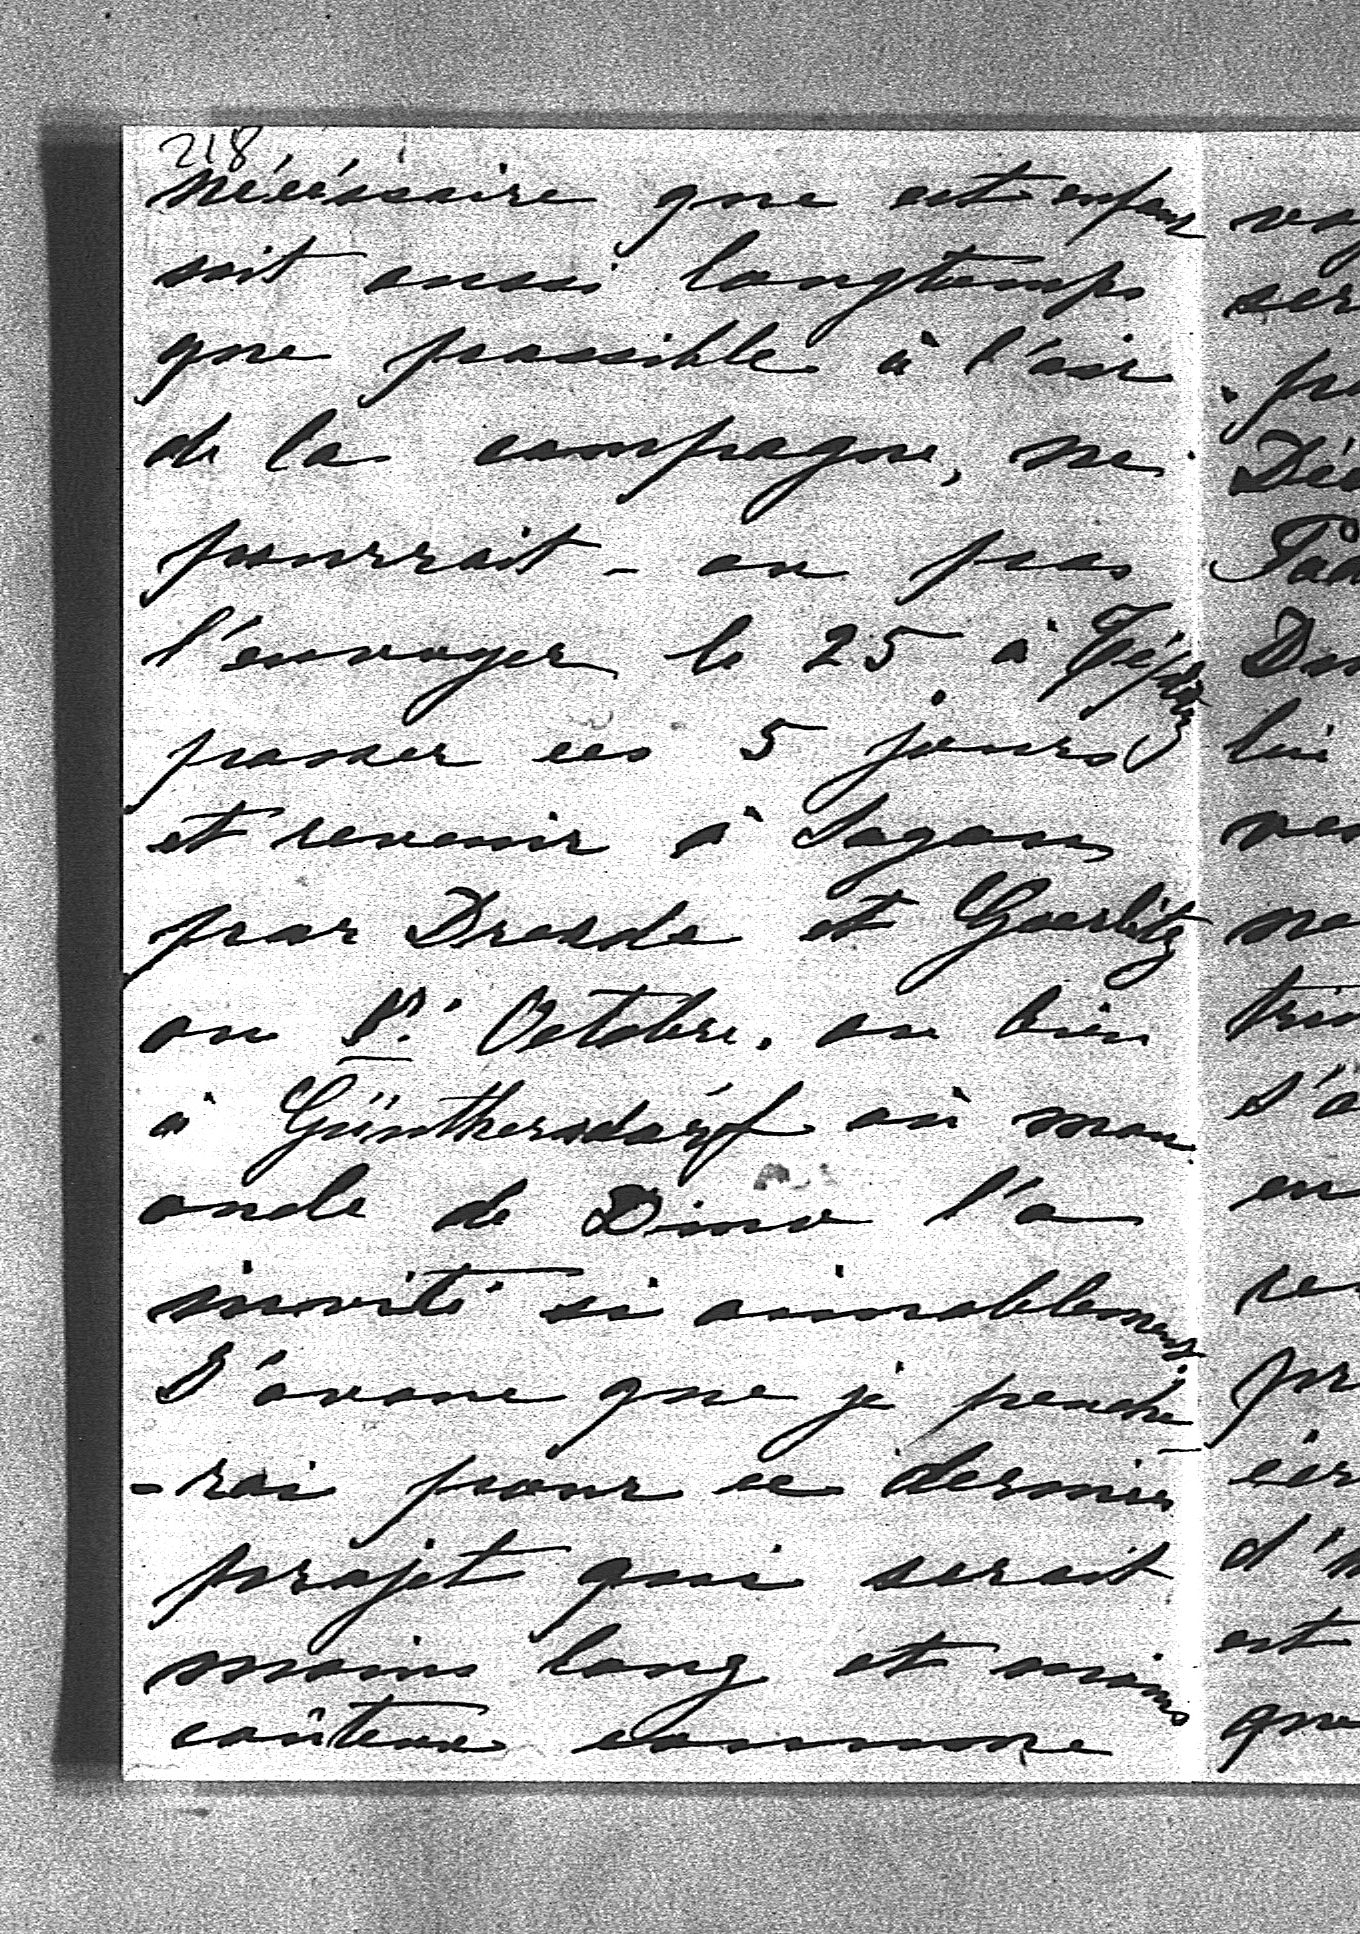 218
nécéssaire que cet enfant
soit aussi longtemps
que possible à l'air
de la campagne, ne
pourrait-on pas
l'envoyer le 25 à
passer ces 5 jours
et revenir à Sagan
par Dresde et Goerlitz
au 1er Octobre, ou bien
à Günthersdorf où mon
oncle de Dino l'a
invité si aimablement.
J'avoue que je penche
-rai pour ce dernier
projet qui serait
moins long et moins
coûteux comme